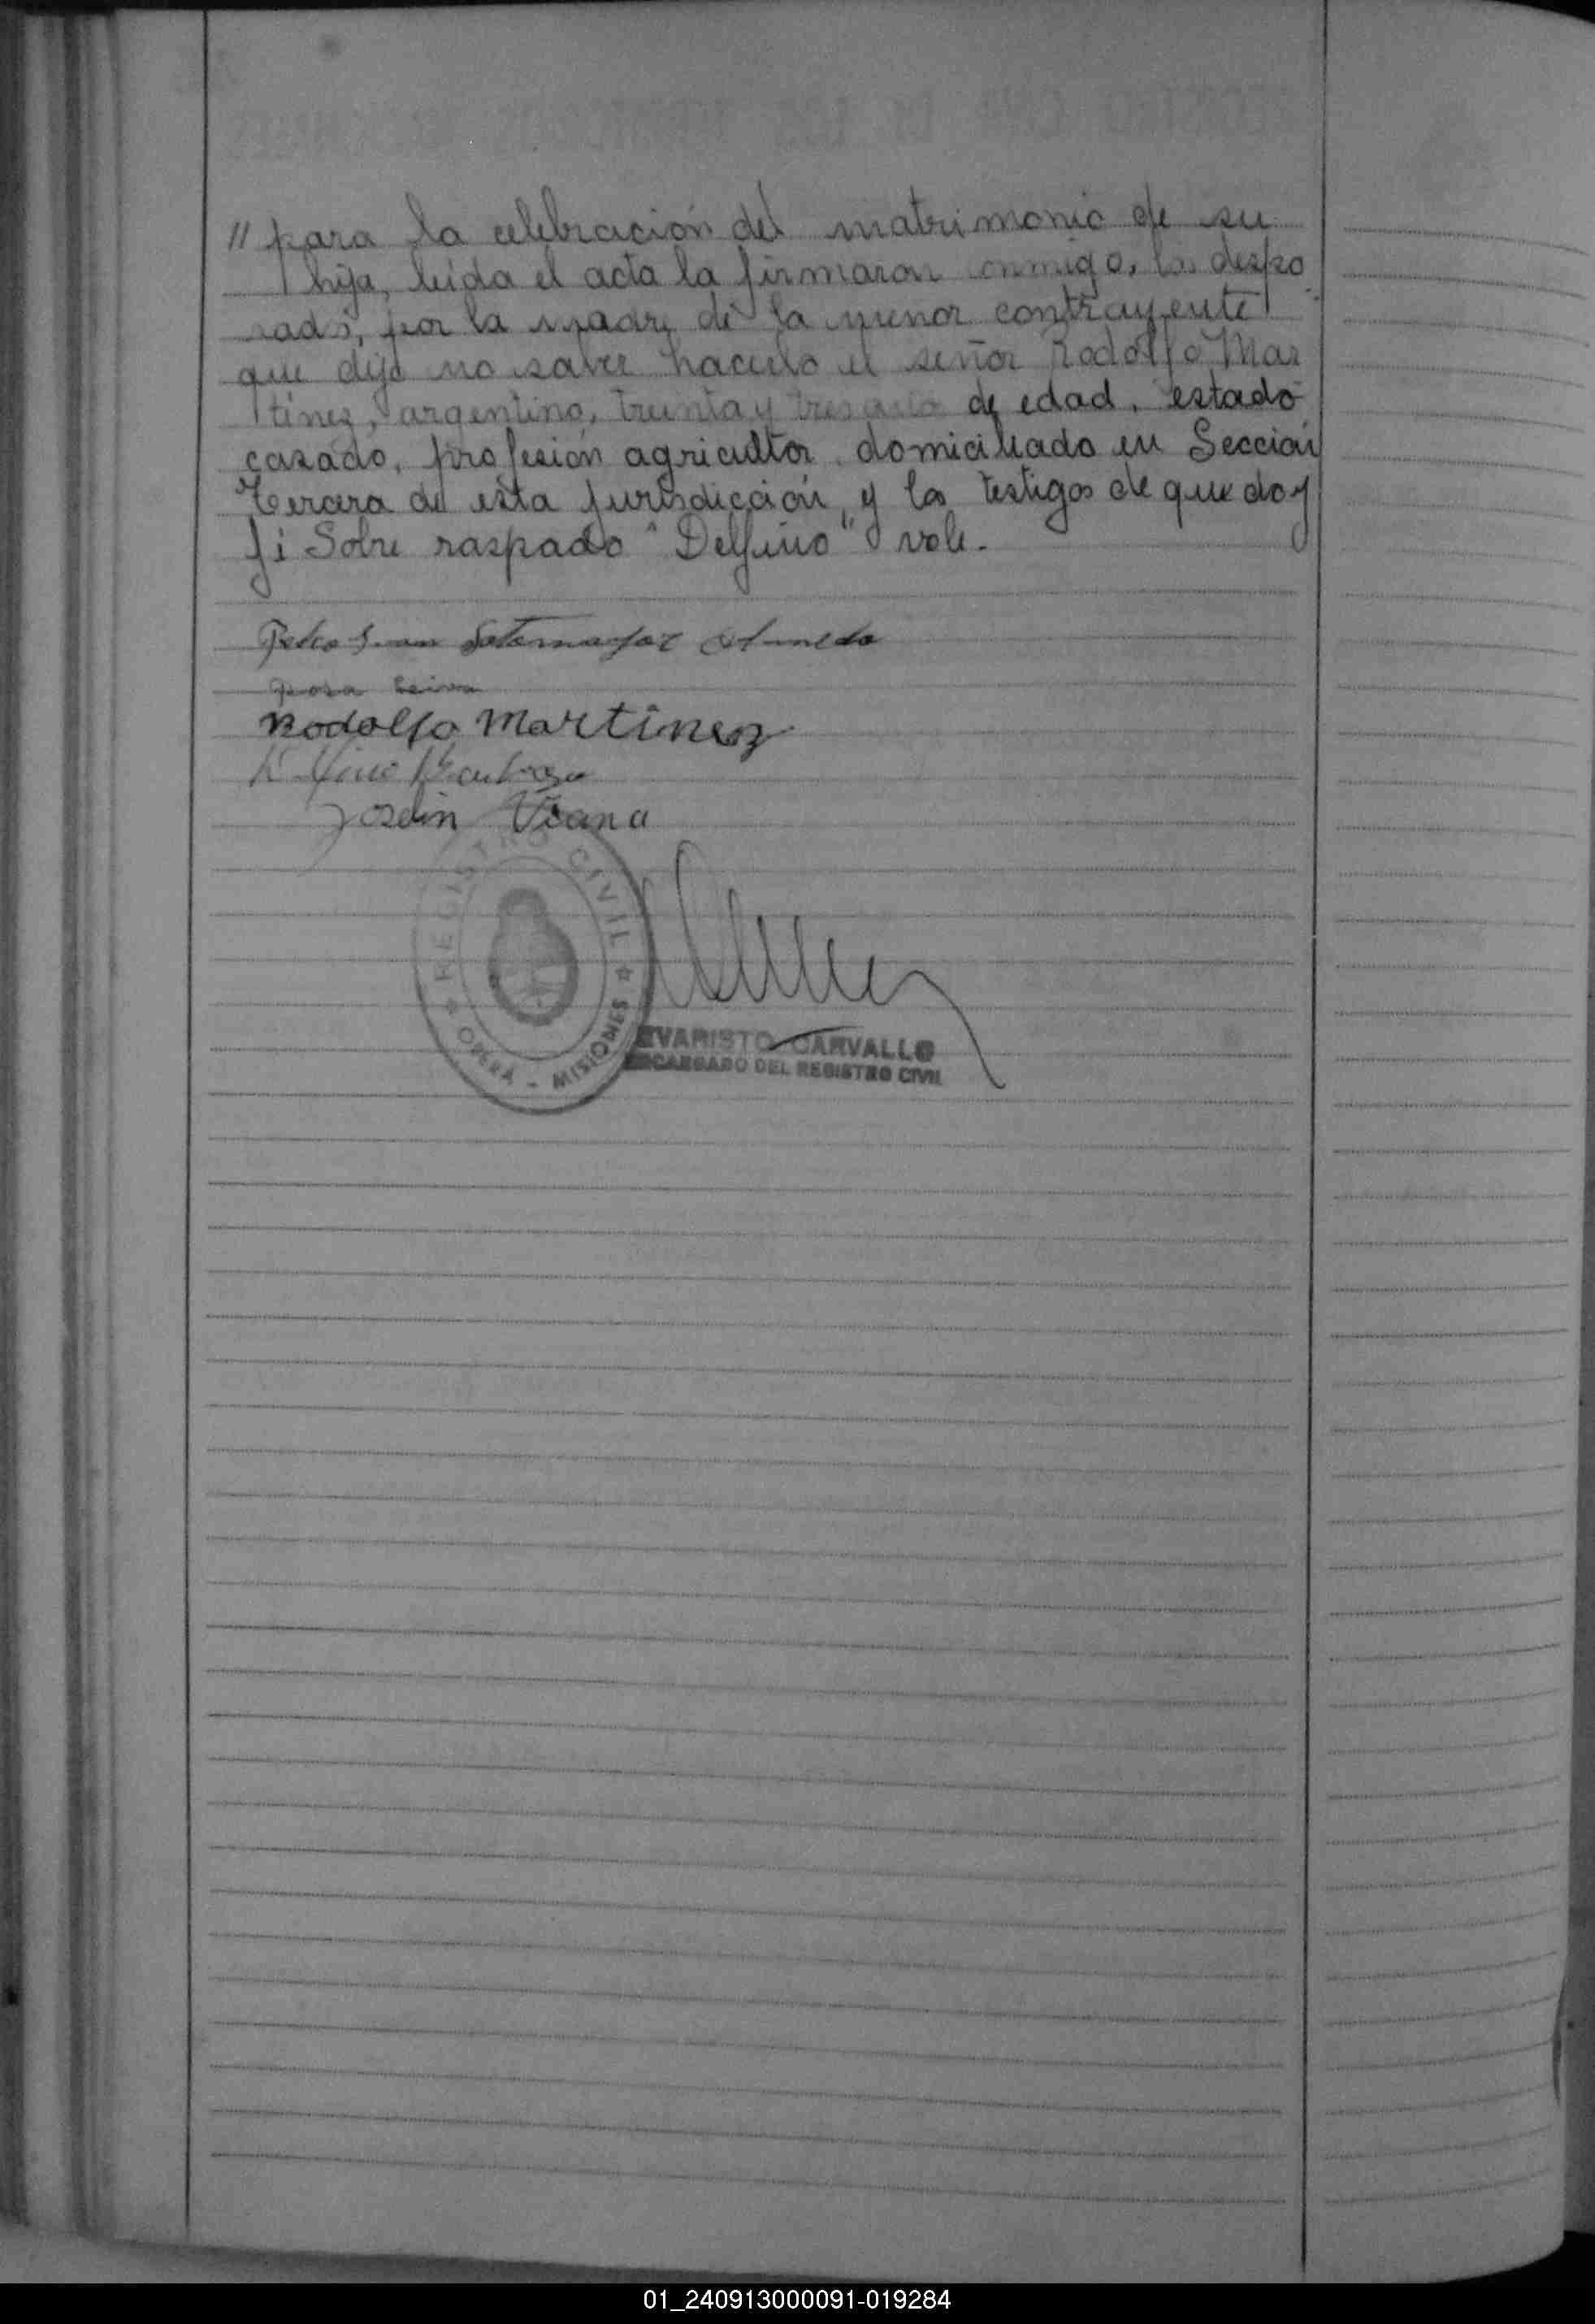 // para la celebración del matrimonio de su
hija, leída el acta la firmaron conmigo, los despo
sados, por la madre de la menor contrayente
que dijo no saber hacerlo el señor Rodolfo Mar
tínez, argentino, treinta y tres años de edad, estado
casado, profesión agricultor, domiciliado en Sección
Tercera de esta jurisdicción, y los testigos de que doy
fé Sobre raspado "Delfino" vale.-
Pedro Juan Sotomayor
Rosa
Rodolfo Martinez
Delfino
Joselin Viana
REGISTRO CIVIL
OBERA - MISIONES
EVARISTO CARVALLO
ENCARGADO DEL REGISTRO CIVIL
01_240913000091-019284